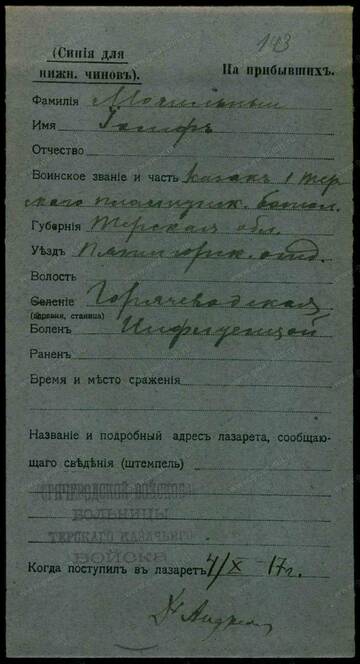 143
(Синія для
нижн. чиновъ).
На прибывшихъ.
Фамилія Могильный
Имя Іосифъ
Отчество
Воинское званіе и часть казакъ 1 Тер
скаго пластунск. батал.
Губернія Терская обл.
Уѣздъ Пятигорск. отд.
Волость
Селеніе Горячеводская
(деревня, станица)
Боленъ
Раненъ
Время и мѣсто сраженія
Названіе и подробный адресъ лазарета, сообщаю-
щаго свѣдѣнія (штемпель)
ГОРЯЧЕВОДСКОЙ ВОЙСКОВОЙ
БОЛЬНИЦЫ
ТЕРСКАГО КАЗАЧЬЯГО
ВОЙСКА
Когда поступилъ въ лазаретъ 4/X 17 г.